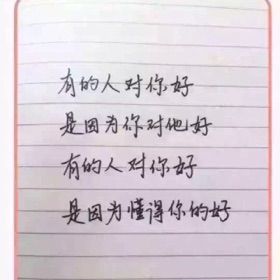 有的人对你好
是因为你对他好
有的人对你好
是因为懂得你的好